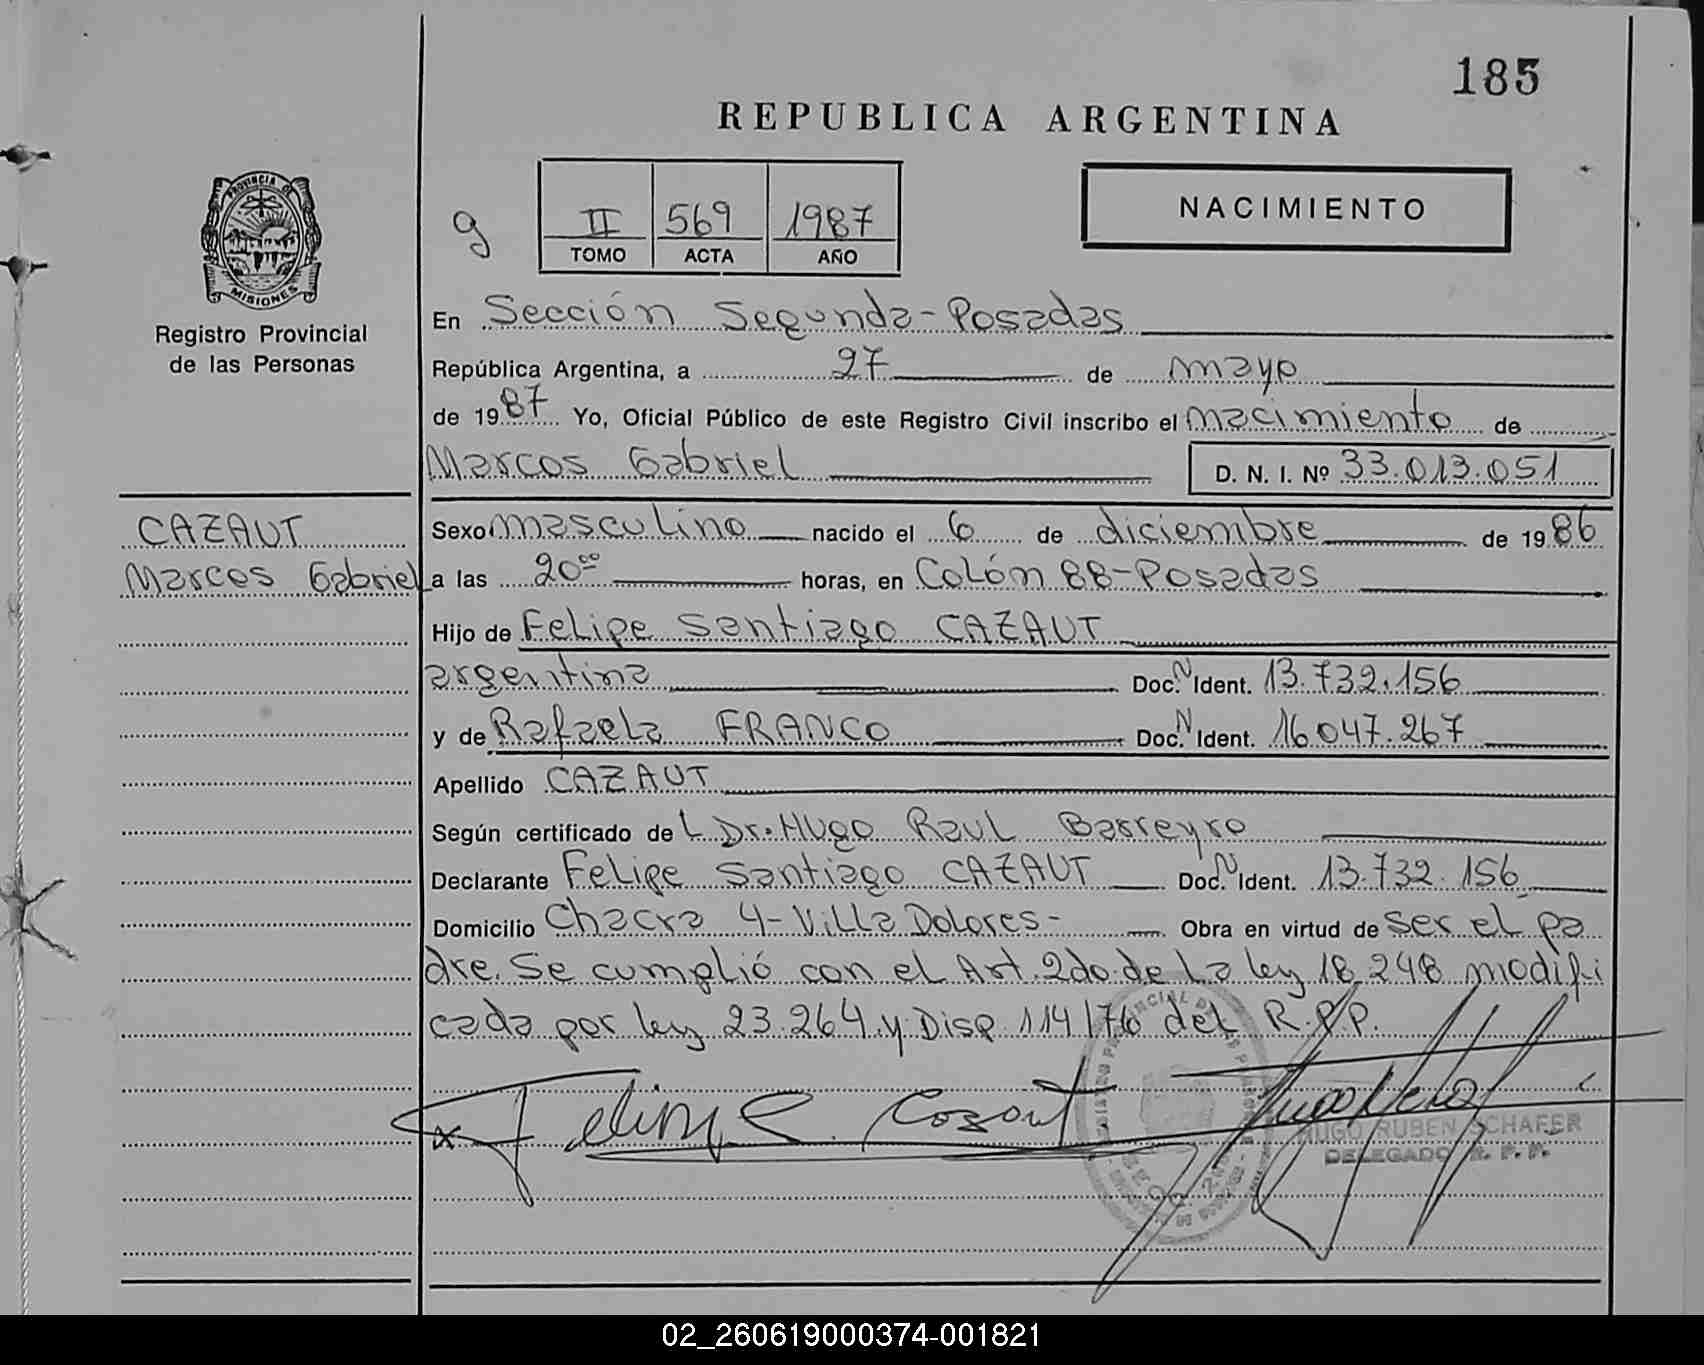 185
REPUBLICA ARGENTINA
PROVINCIA DE
MISIONES
Registro Provincial
de las Personas
NACIMIENTO
g
II 569 1987
TOMO ACTA AÑO
En Sección Segunda-Posadas
República Argentina, a 27 de mayo
de 1987 Yo, Oficial Público de este Registro Civil inscribo el nacimiento de
Marcos Gabriel D. N. I. Nº 33.013.051
CAZAUT
Marcos Gabriel
Sexo masculino nacido el 6 de diciembre de 1986
a las 20⁰⁰ horas, en Colón 88-Posadas
Hijo de Felipe Santiago CAZAUT
argentina Doc. N Ident. 13.732.156
y de Rafaela FRANCO Doc. N Ident. 16.047.267
Apellido CAZAUT
Según certificado de L Dr. Hugo Raul Barreyro
Declarante Felipe Santiago CAZAUT Doc. N Ident. 13.732.156
Domicilio Chacra 4-Villa Dolores- Obra en virtud de ser el pa
dre. Se cumplió con el Art. 2do de La ley 18.248 modifi
cada por ley 23.264 y Disp. 114/76 del R.P.P.
x Felipe Cazaut
HUGO RUBEN SCHAFER
DELEGADO R. P. P.
02_260619000374-001821